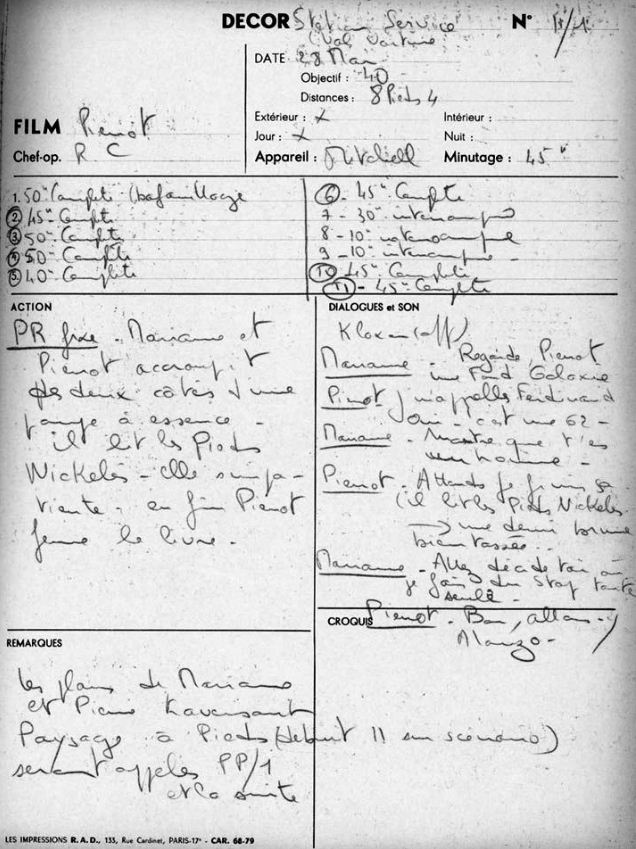 DECOR Station Service N° 11/1
(Val
DATE 28 Mai
Objectif : 40
Distances : 8 Pieds 4
Extérieur : x Intérieur :
Jour : x Nuit :
FILM Pierrot
Chef-op. R C
Appareil : Mitchell Minutage : 45"
1. 50" Complète (bafouillage
2 45" Complète
3 50" Complète
4 50" Complète
5 40" Complète
6 - 45" Complète
7 - 30" interrompue
8 - 10" interrompue
9 - 10" interrompue -
10 45" Complète
11 - 45" Complète
ACTION
PR fixe - Marianne et
Pierrot accroupit
des deux côtés d'une
pompe à essence -
il lit les Pieds
Nickelés - elle s'impa-
tiente - en fin Pierrot
ferme le livre -
DIALOGUES et SON
Klaxon (off)
Marianne - Regarde Pierrot
une Ford Galaxie
Pierrot j'm'appelle Ferdinand
Oui - c'est une 62 -
Marianne - Montre que t'es
un homme -
Pierrot - Attends je finis ça
(il lit les Pieds Nickelés
→ une demi brune
bien tassée -
Marianne - Allez décide toi ou
je fais du stop toute
seule -
CROQUIS
Pierrot - Bon, allons-y
Alonzo -
REMARQUES
les plans de Marianne
et Pierre traversant
Paysage à Pieds (debut 11 sur scénario)
seront appelés PP/1
et la suite
LES IMPRESSIONS R.A.D., 133, Rue Cardinet, PARIS-17e - CAR. 68-79